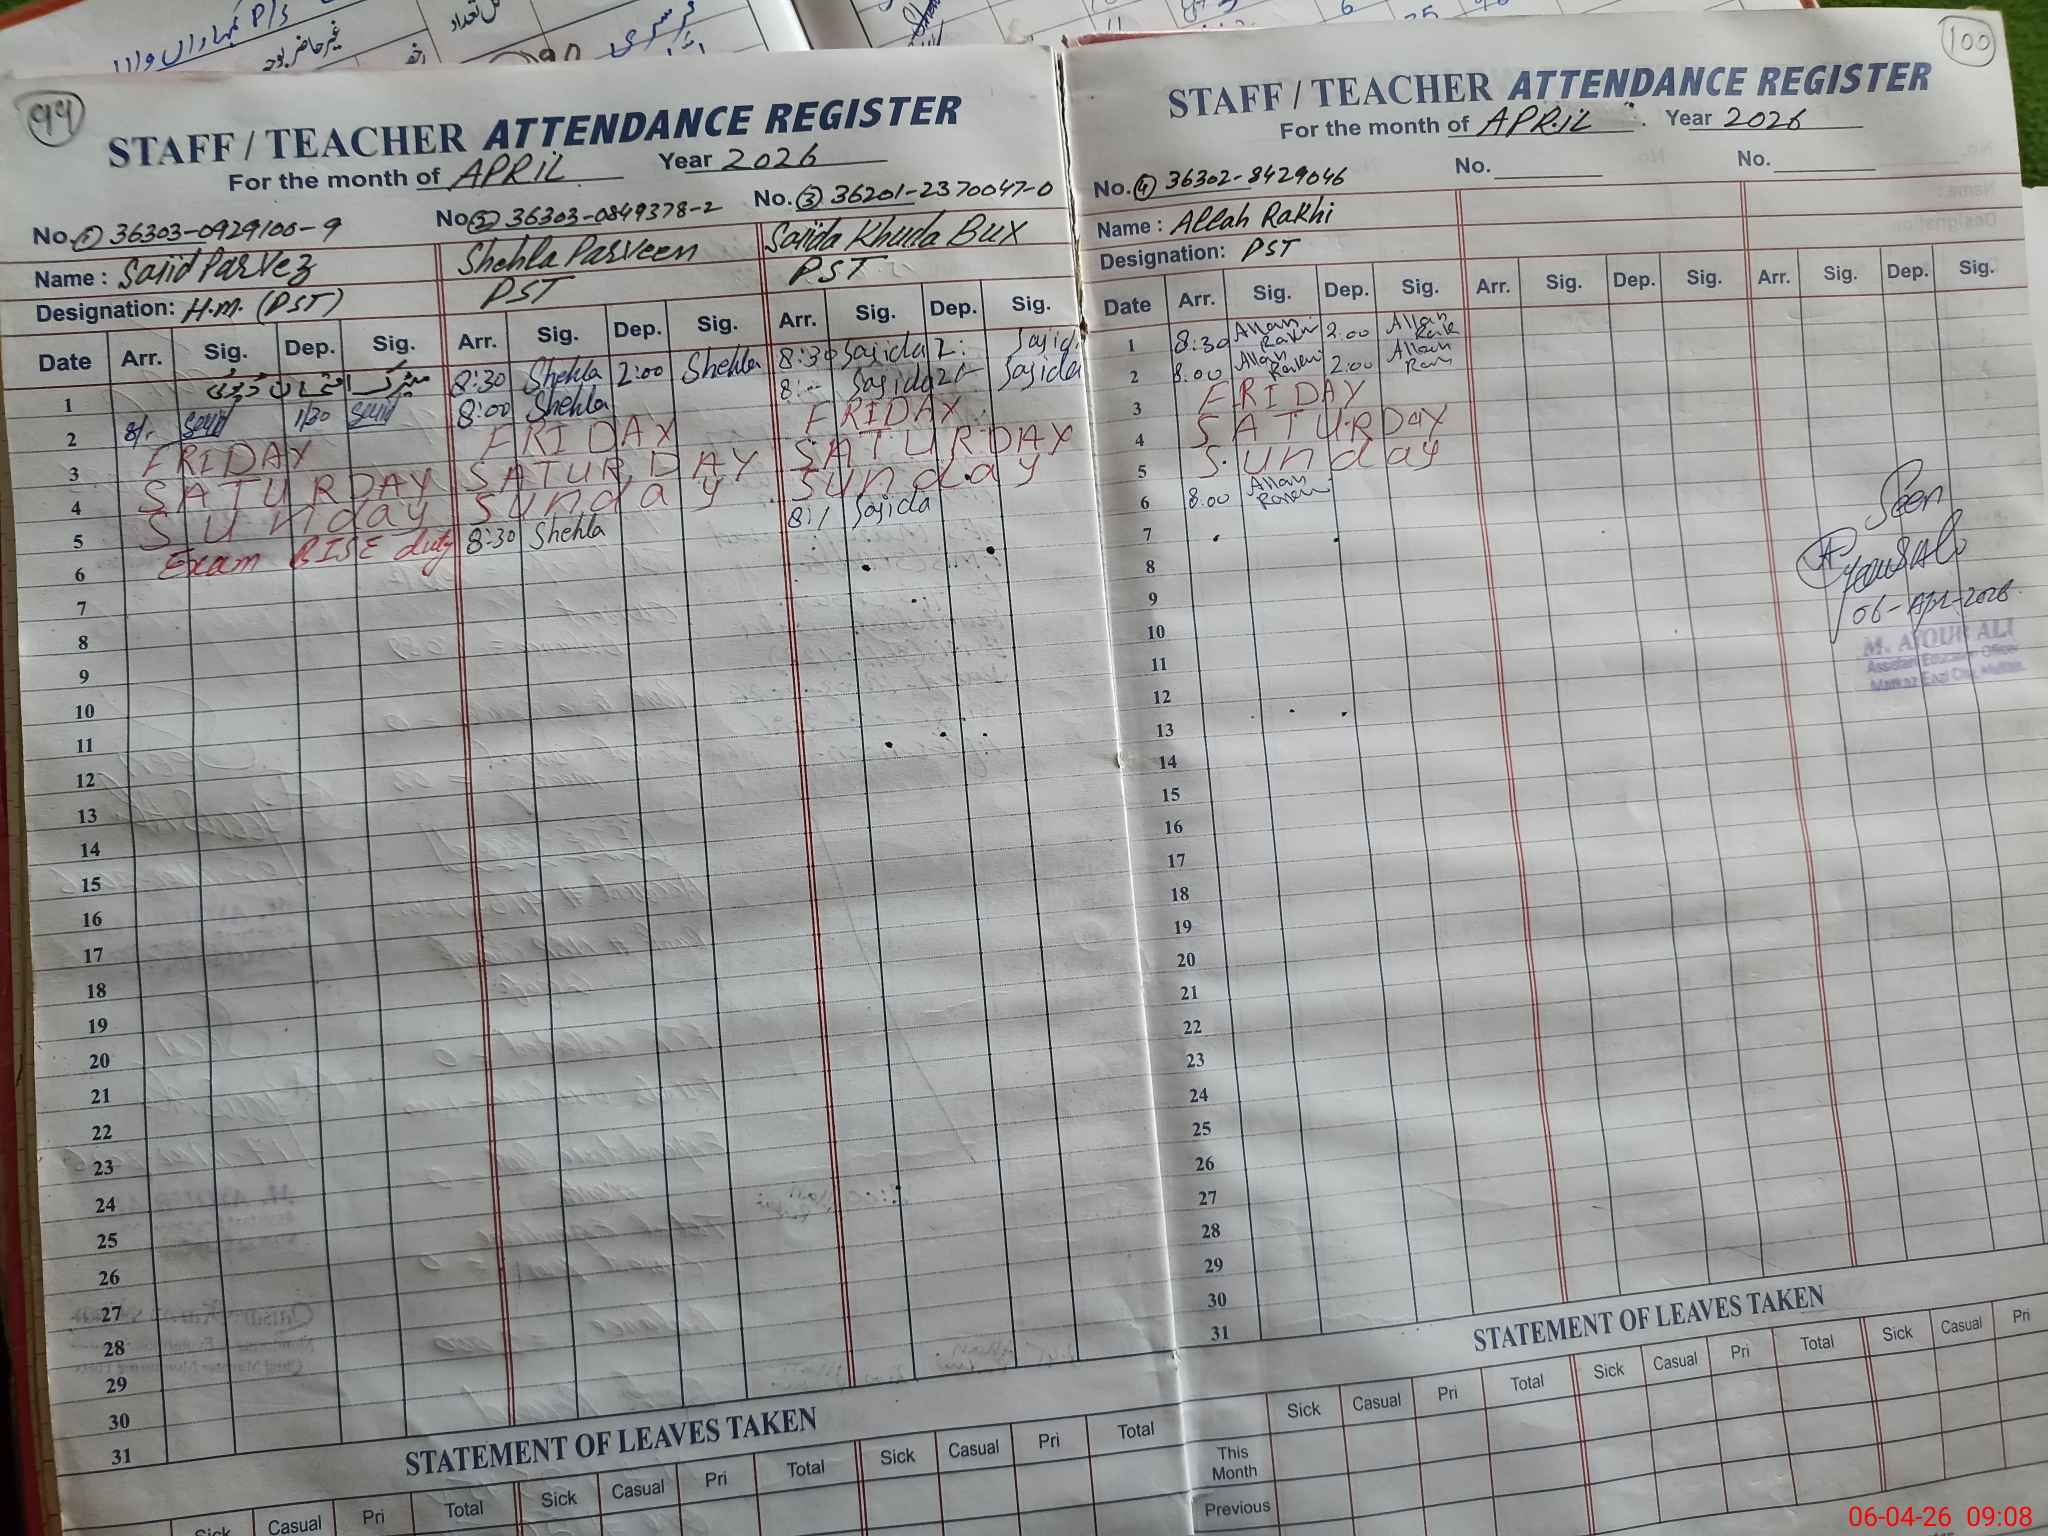 99
STAFF / TEACHER ATTENDANCE REGISTER
For the month of APRIL Year 2026
No. ① 36303-0929100-9 No. ② 36303-0849378-2 No. ③ 36201-2370047-0
Name : Sajid Parvez Shehla Parveen Sajida Khuda Bux
Designation: H.M. (PST) PST PST
Date Arr. Sig. Dep. Sig. Arr. Sig. Dep. Sig. Arr. Sig. Dep. Sig.
1 میٹرک امتحان ڈیوٹی 8:30 Shehla 2:00 Shehla 8:30 Sajida 2: Sajida
2 8/- Sajid 1/30 Sajid 8:00 Shehla 8:-- Sajida 2/- Sajida
3 FRIDAY FRIDAY FRIDAY
4 SATURDAY SATURDAY SATURDAY
5 Sunday Sunday Sunday
6 Exam BISE duty 8:30 Shehla 8:/ Sajida
7
8
9
10
11
12
13
14
15
16
17
18
19
20
21
22
23
24
25
26
27
28
29
30
31
STATEMENT OF LEAVES TAKEN
Sick Casual Pri Total Sick Casual Pri Total Sick Casual Pri Total
100
STAFF / TEACHER ATTENDANCE REGISTER
For the month of APRIL Year 2026
No. ④ 36302-8429046 No. No.
Name : Allah Rakhi
Designation: PST
Date Arr. Sig. Dep. Sig. Arr. Sig. Dep. Sig. Arr. Sig. Dep. Sig.
1 8:30 Allah Rakhi 2:00 Allah Rakhi
2 8:00 Allah Rakhi 2:00 Allah Rakhi
3 FRIDAY
4 SATURDAY
5 Sunday
6 8:00 Allah Rakhi
7
8
9
10
11
12
13
14
15
16
17
18
19
20
21
22
23
24
25
26
27
28
29
30
31
Seen
06-Apr-2026
M. AYOUB ALI
Assistant Education Officer
STATEMENT OF LEAVES TAKEN
Sick Casual Pri Total Sick Casual Pri Total Sick Casual Pri
This Month
Previous
06-04-26 09:08